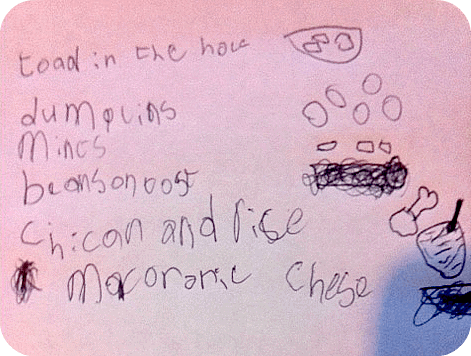 toad in the hole
dumplins
mincs
beansontost
Chican and rise
Macoronie Chese